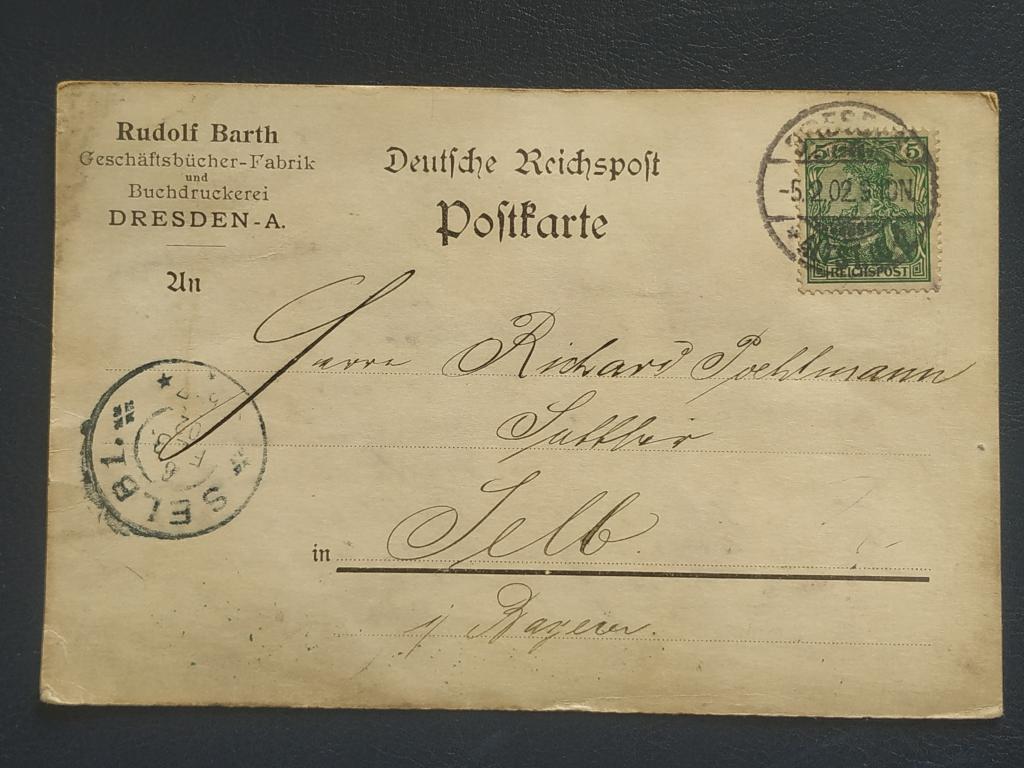 Rudolf Barth
Geschäftsbücher-Fabrik
und
Buchdruckerei
DRESDEN-A.
Deutsche Reichspost
Postkarte
An
5 5
-5.2.02.
REICHSPOST
Herrn Richard Poehlmann
in Selb
Bayern.
SELB 1.